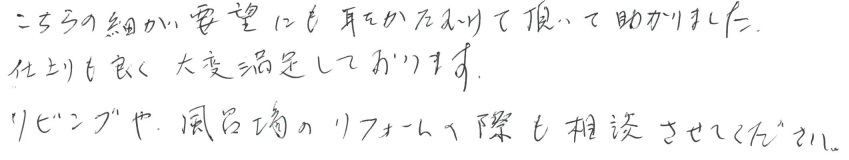 こちらの細かい要望にも耳をかたむけて頂いて助かりました.
仕上りも良く大変満足しております.
リビングや.風呂場のリフォームの際も相談させてください。